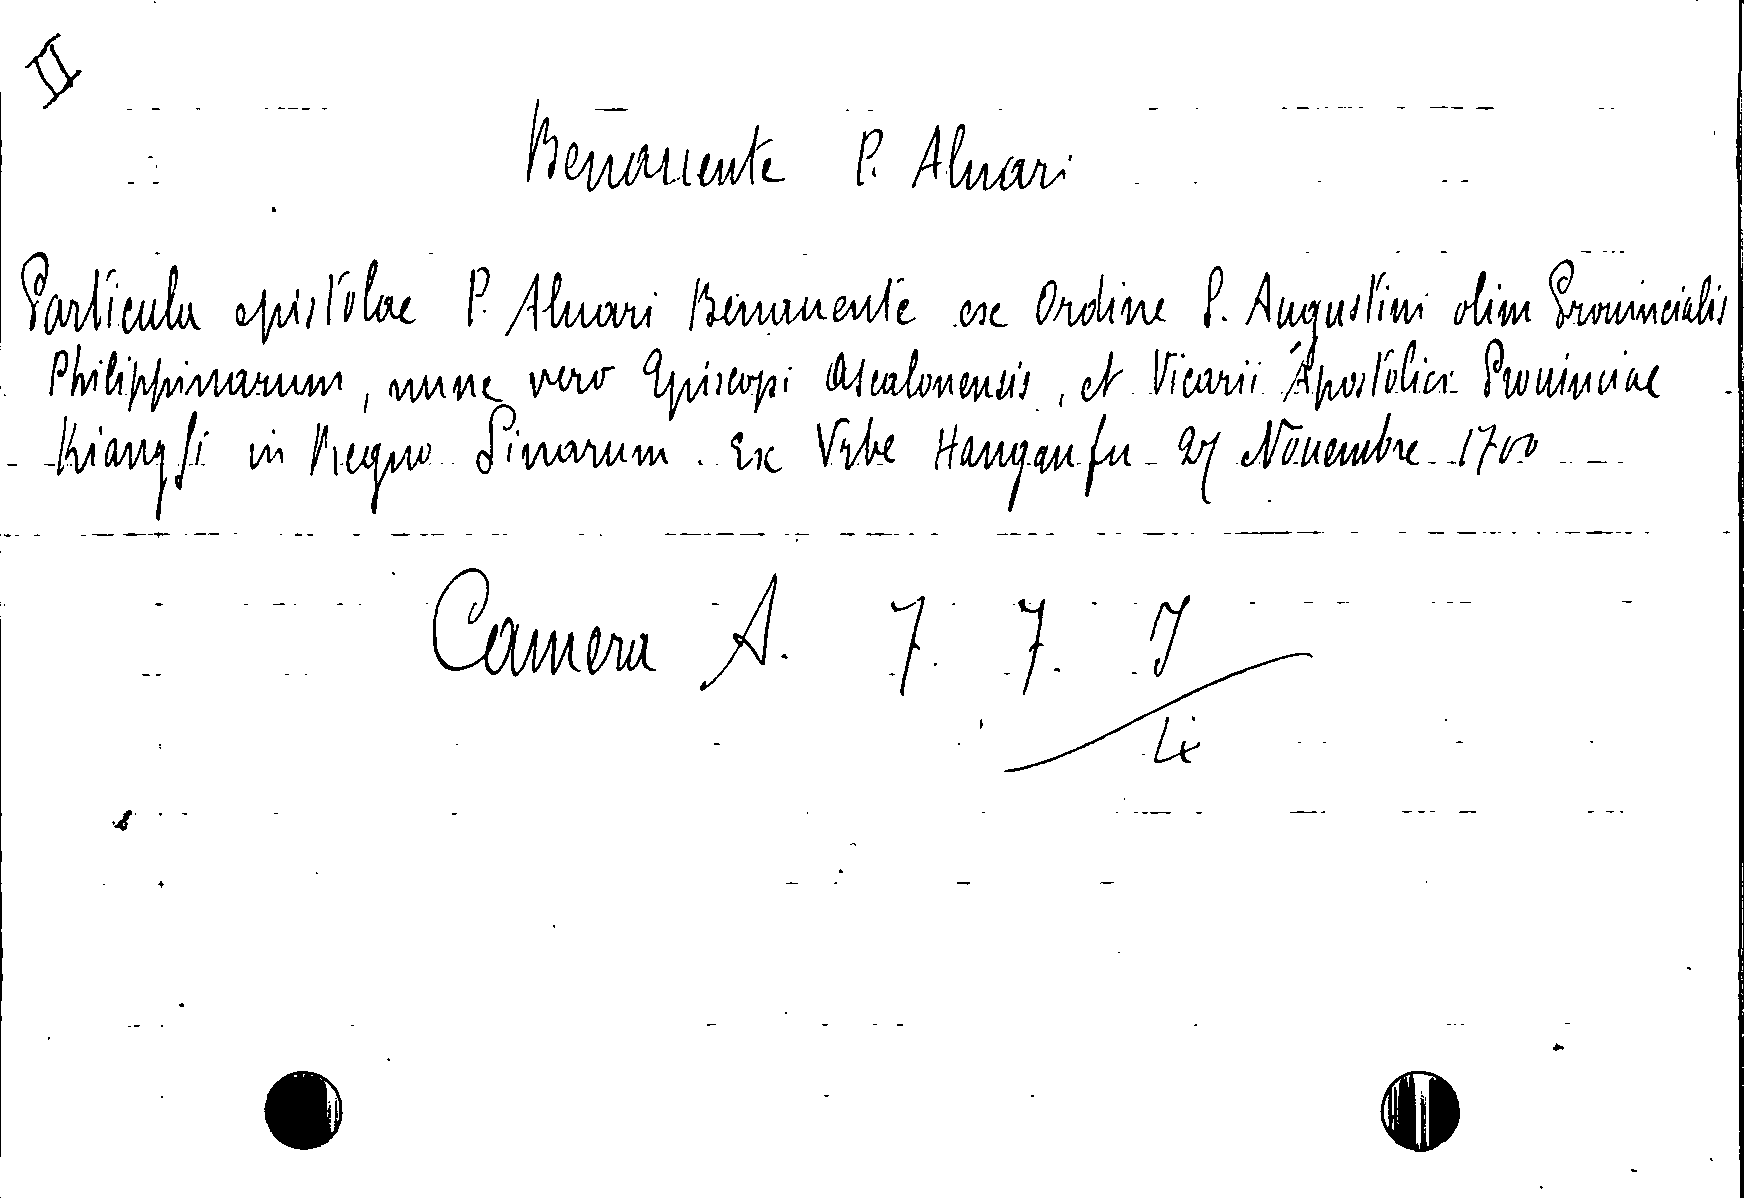 II
Benauente P. Aluari
Particula epistolae P. Aluari Benauente ex Ordine S. Augustini olim Prouincialis
Philippinarum, nunc vero Episcopi Ascalonensis, et Vicarii Apostolici Prouinciae
Kiangsi in Regno Sinarum. Ex Vrbe Hanganfu 27 Nouembre 1700
Camera A. 7. 7. I